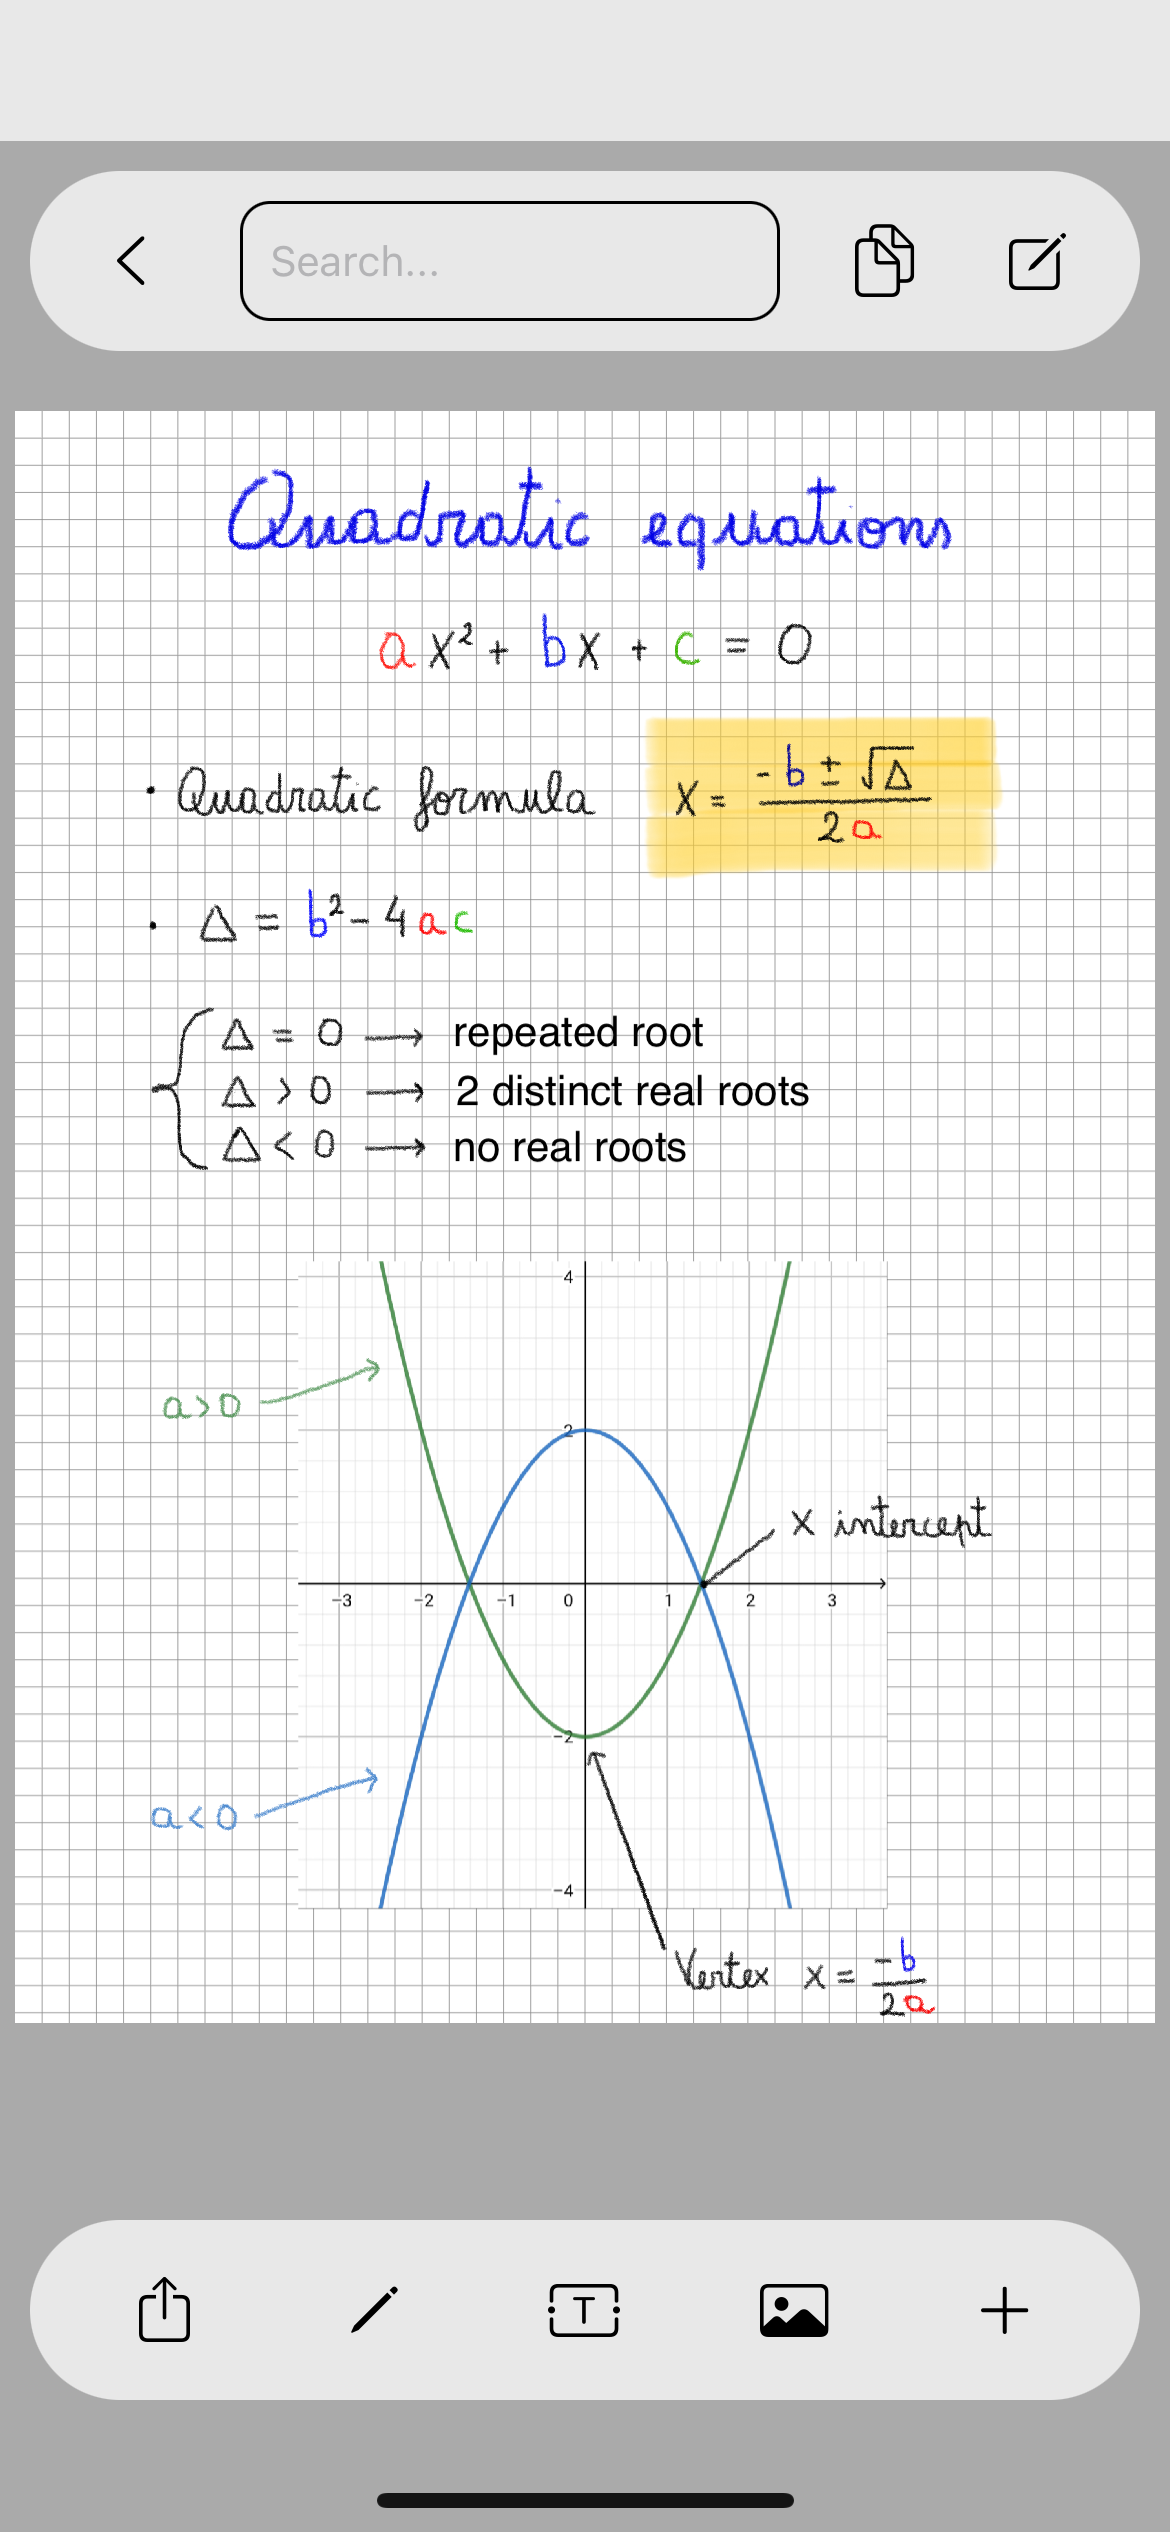 Search...
Quadratic equations
ax² + bx + c = 0
· Quadratic formula x = -b ± √Δ / 2a
· Δ = b² - 4ac
Δ = 0 → repeated root
Δ > 0 → 2 distinct real roots
Δ < 0 → no real roots
4
a>0
2
x intercept
-3 -2 -1 0 1 2 3
-2
a<0
-4
Vertex x = -b / 2a
T